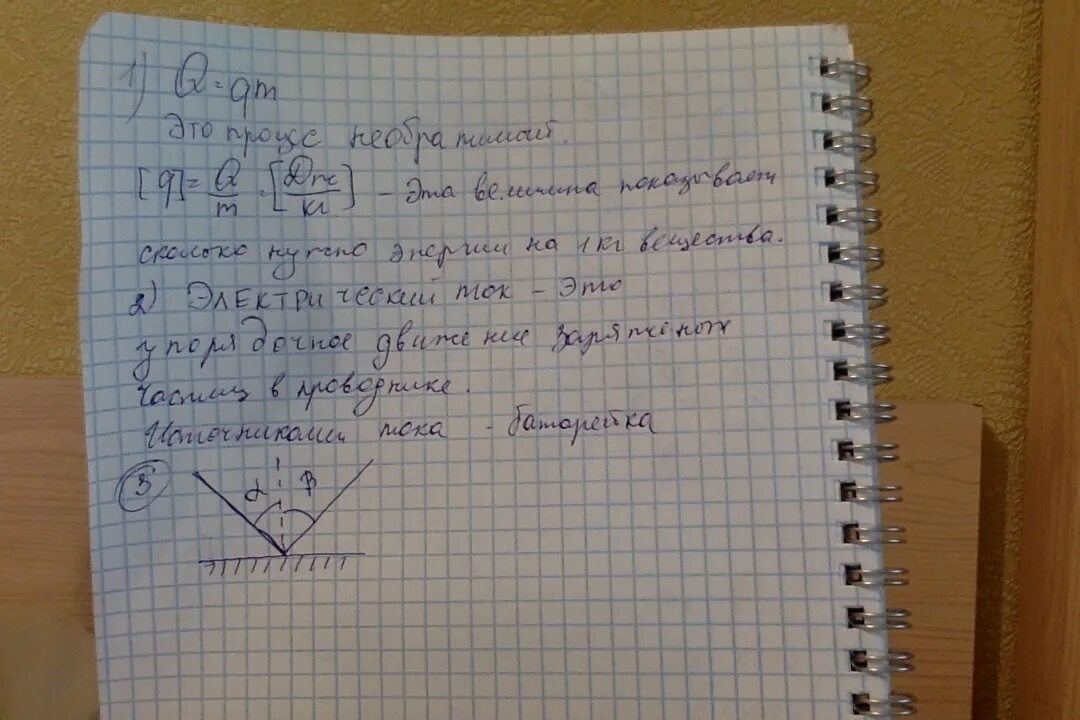 1) Q = qm
Это процес необратимый.
[q] = Q/m = [Дж/кг] – Эта величина показывает
сколько нужно энергии на 1 кг вещества.
2) Электрический ток – Это
упорядочное движение заряженых
частиц в проводнике.
Источниками тока - батарейка
3 α β